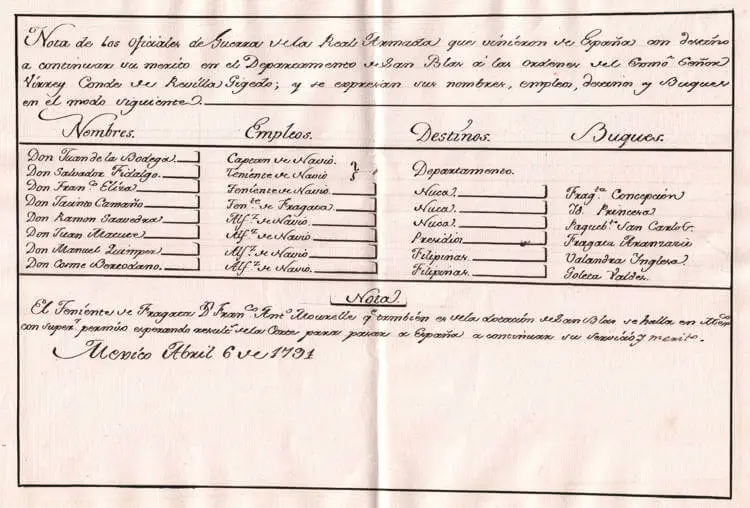 Nota de los Oficiales de Guerra de la Real Armada que vinieron de España con destino
a continuar su merito en el Departamento de San Blas á las ordenes del Exmô Señor
Virrey Conde de Revilla Gigedo; y se expresan sus nombres, empleos, destinos y Buques
en el modo siguiente.
Nombres. Empleos. Destinos. Buques.
Don Juan de la Bodega Capitan de Navio.
Don Salvador Fidalgo. Teniente de Navio Departamento.
Don Fran.co Eliza Teniente de Navio. Nuca Frag.ta Concepción
Don Jacinto Camaño Ten.te de Fragata Nuca Yd. Princesa
Don Ramon Saavedra Alf.z de Navio. Nuca Paqueb.t San Carlos
Don Juan Matute Alf.z de Navio. Presidios Fragata Aranzazu
Don Manuel Quimper Alf.z de Navio. Filipinas Valandra Ynglesa
Don Cosme Bertodano. Alf.z de Navio. Filipinas. Goleta Valdés.
Nota
El Teniente de Fragata D.n Fran.co Ant.o Mourelle q.e también es de la dotación de San Blas se halla en Mex.co
con super.r permiso esperando result.s de la Corte para pasar a España a continuar su servicio y merito.
Mexico Abril 6 de 1791